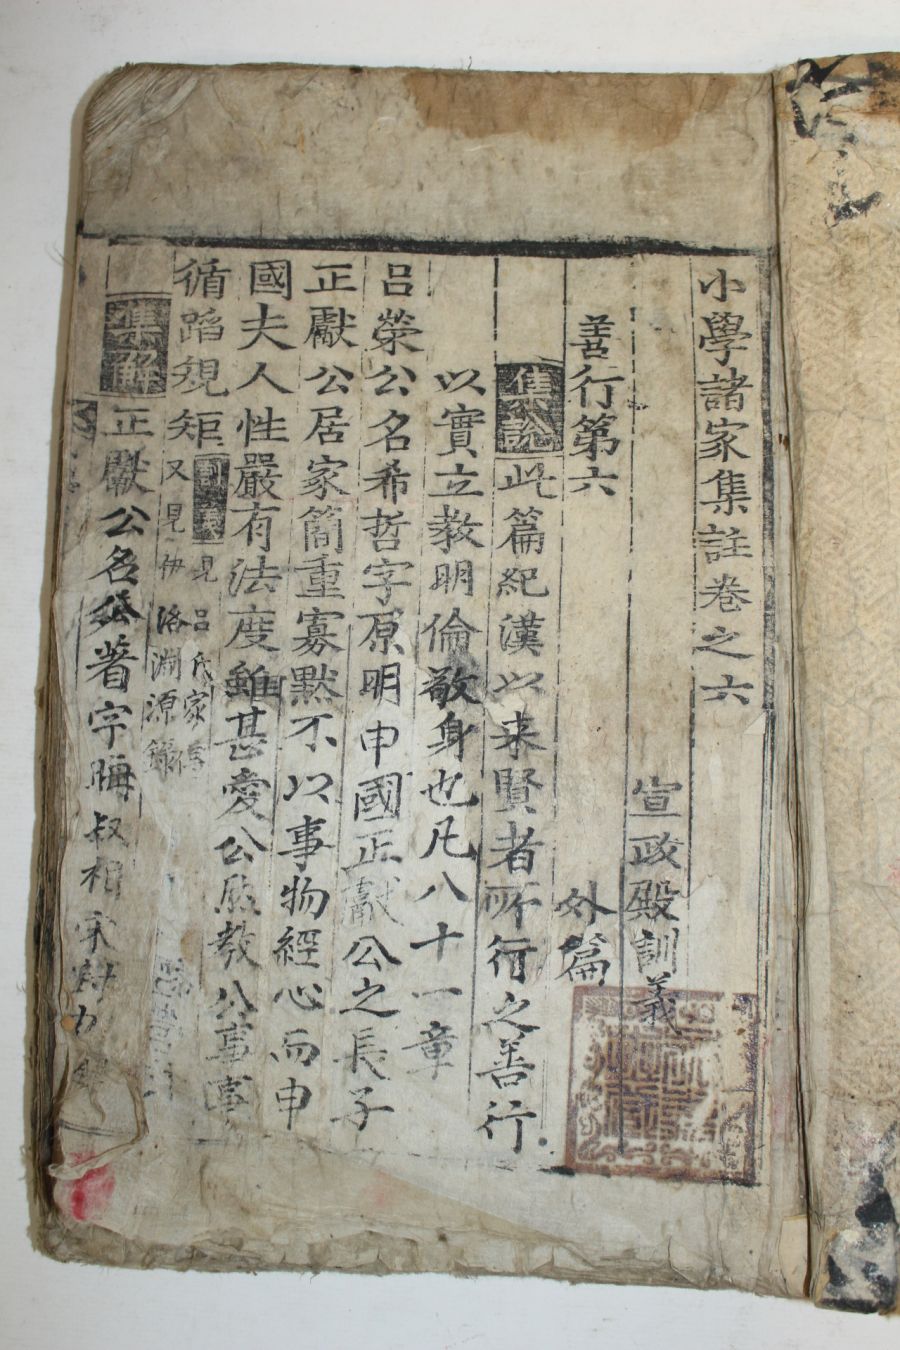 小學諸家集註卷之六
宣政殿訓義
善行第六 外篇
集說 此篇紀漢以来賢者所行之善行
以實立敎明倫敬身也凡八十一章
呂榮公名希哲字原明申國正獻公之長子
正獻公居家簡重寡默不以事物經心而申
國夫人性嚴有法度雖甚愛公然敎公事事
循蹈規矩 訓義 見呂氏家傳
又見伊洛淵源錄
集解 正獻公名公著字晦叔相宋